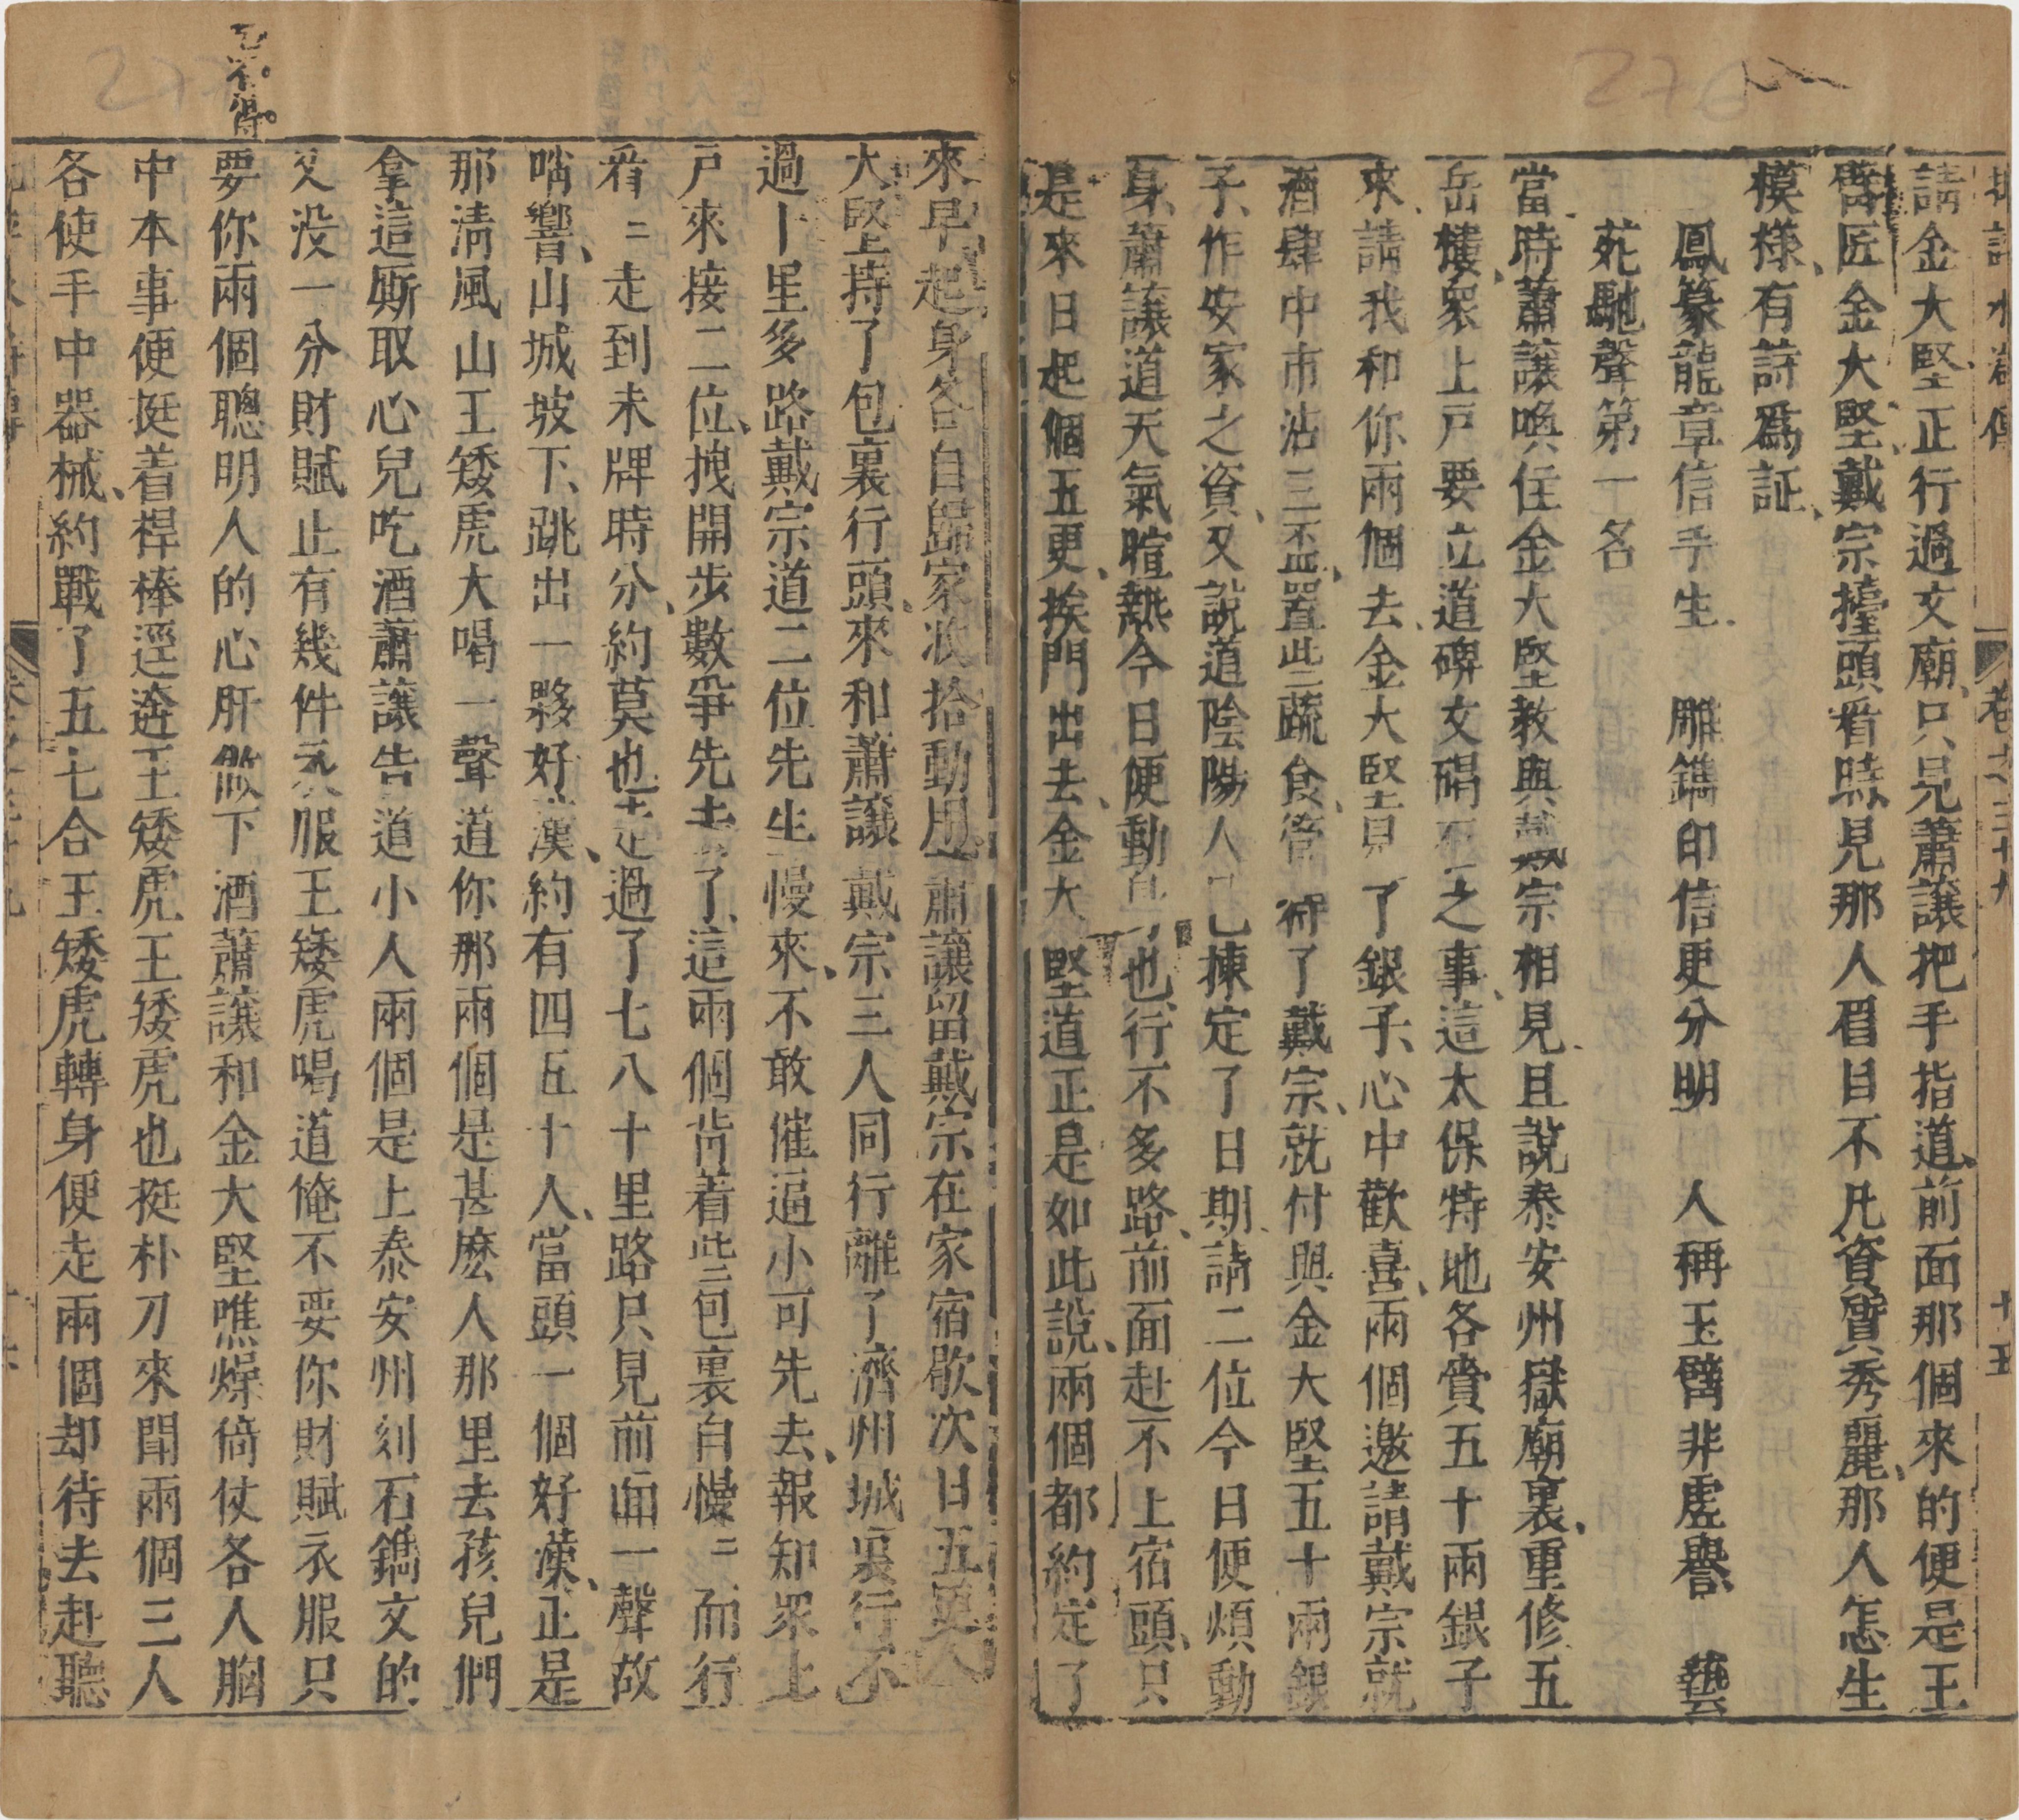 水滸傳 卷之三十九 十五
請金大堅正行過文廟只見蕭讓把手指道前面那個來的便是玉
臂匠金大堅戴宗擡頭看時見那人眉目不凡資質秀麗那人怎生
模樣有詩爲証
鳳篆龍章信手生 雕鐫印信更分明 人稱玉臂非虛譽 藝
苑馳聲第一名
當時蕭讓喚住金大堅教與戴宗相見且說泰安州嶽廟裏重修五
岳樓衆上戶要立道碑文碣石之事這太保特地各賫五十兩銀子
來請我和你兩個去金大堅見了銀子心中歡喜兩個邀請戴宗就
酒肆中市沽三盃置些蔬食管待了戴宗就付與金大堅五十兩銀
子作安家之資又說道陰陽人已揀定了日期請二位今日便煩動
身蕭讓道天氣暄熱今日便動身也行不多路前面赴不上宿頭只
是來日起個五更挨門出去金大堅道正是如此說兩個都約定了
來早起身各自歸家收拾動用蕭讓留戴宗在家宿歇次日五更金
大堅持了包裹行頭來和蕭讓戴宗三人同行離了濟州城裏行不
過十里多路戴宗道二位先生慢來不敢催逼小可先去報知衆上
戶來接二位拽開步數爭先去了這兩個背着些包裹自慢二而行
看二走到未牌時分約莫也走過了七八十里路只見前面一聲故
哨響山城坡下跳出一夥好漢約有四五十人當頭一個好漢正是
那清風山王矮虎大喝一聲道你那兩個是甚麽人那里去孩兒們
拿這厮取心兒吃酒蕭讓告道小人兩個是上泰安州刻石鐫文的
又没一分財賦止有幾件衣服王矮虎喝道俺不要你財賦衣服只
要你兩個聰明人的心肝做下酒蕭讓和金大堅噍燥倚仗各人胸
中本事便挺着桿棒逕逩王矮虎王矮虎也挺朴刀來鬪兩個三人
各使手中器械約戰了五七合王矮虎轉身便走兩個却待去赶聽